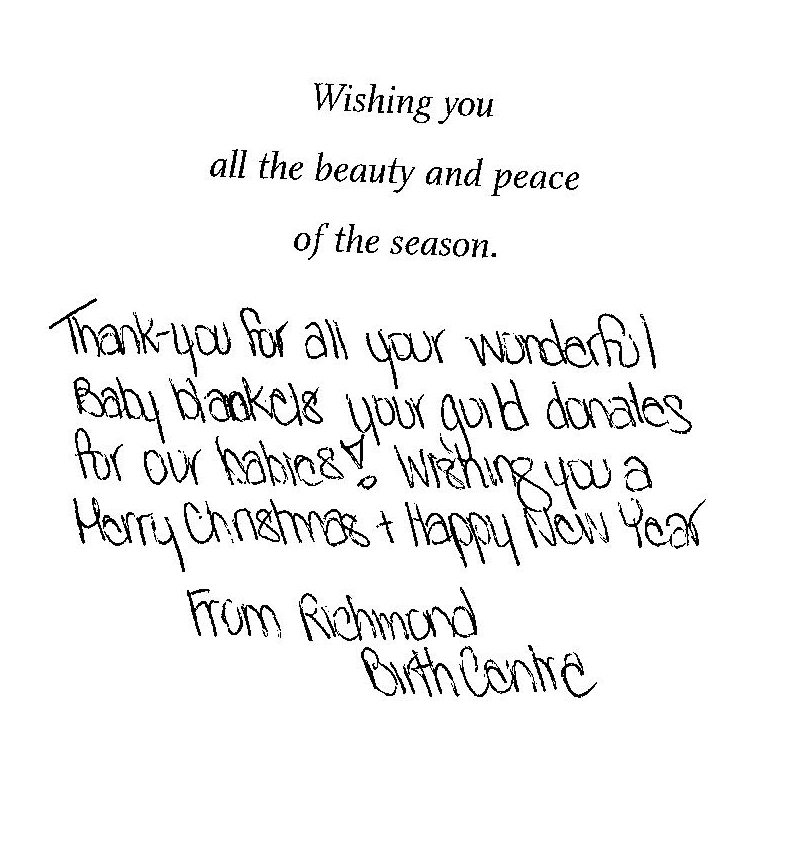 Wishing you
all the beauty and peace
of the season.
Thank-you for all your wonderful
Baby blankets your guild donates
for our babies! Wishing you a
Merry Christmas + Happy New Year
From Richmond
Birth Centre